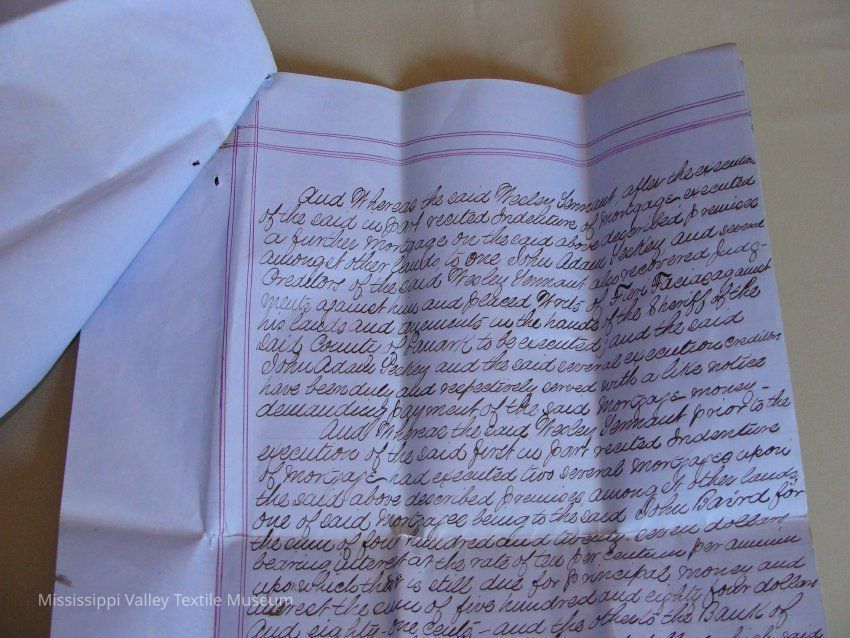 And Whereas the said Wesley Tennant, after the execution
of the said in part recited Indenture of Mortgage executed
a further Mortgage on the said above described premises
amongst other lands to one John Adam and several
Creditors of the said Wesley Tennant also recovered Judg-
ments against him and placed Writs of Fieri Facias against
his lands and tenements in the hands of the Sheriff of the
said County of Lanark to be executed; and the said
John Adam and the said several execution creditors
have been duly and respectively served with a like notice
demanding payment of the said Mortgage money-
And Whereas the said Wesley Tennant prior to the
execution of the said first in part recited Indenture
of Mortgage had executed two several Mortgages upon
the said above described premises amongst other lands,
one of said Mortgages being to the said John Baird for
the sum of four hundred and twenty seven dollars
bearing interest at the rate of ten per centum per annum
upon which there is still due for principal money and
interest the sum of five hundred and eighty four dollars
and eighty-one cents - and the other to the Bank of
Mississippi Valley Textile Museum